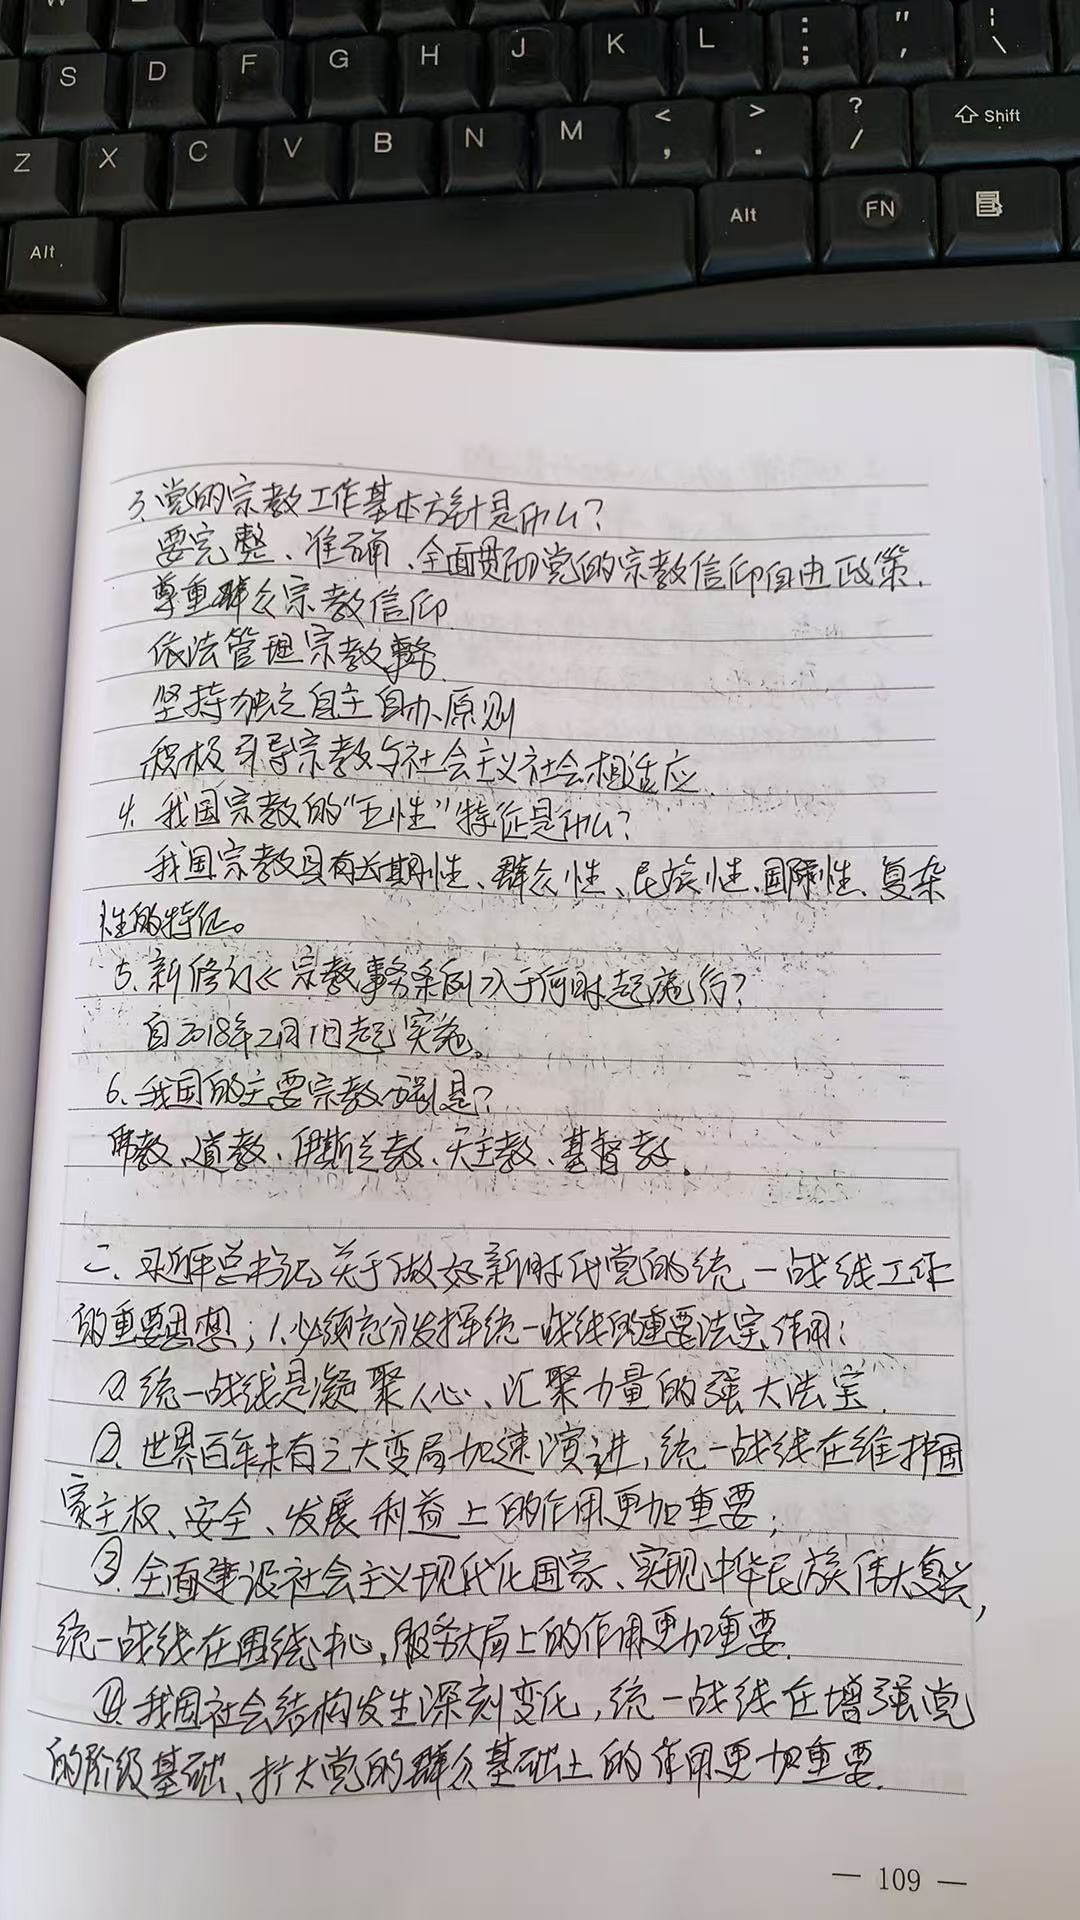 S D F G H J K L : ; " ' | \
Z X C V B N M < , > . ? / Shift
Alt Alt FN
3.党的宗教工作基本方针是什么?
要完整、准确、全面贯彻党的宗教信仰自由政策.
尊重群众宗教信仰
依法管理宗教事务.
坚持独立自主自办原则
积极引导宗教与社会主义社会相适应.
4.我国宗教的“五性”特征是什么?
我国宗教具有长期性、群众性、民族性、国际性、复杂
性的特征。
5.新修订《宗教事务条例》于何时起施行?
自2018年2月1日起实施。
6、我国的主要宗教有哪些是?
佛教、道教、伊斯兰教、天主教、基督教.
二、习近平总书记关于做好新时代党的统一战线工作
的重要思想;1.必须充分发挥统一战线的重要法宝作用:
①统一战线是凝聚人心、汇聚力量的强大法宝.
②.世界百年未有之大变局加速演进,统一战线在维护国
家主权、安全、发展利益上的作用更加重要;
③.全面建设社会主义现代化国家、实现中华民族伟大复兴,
统一战线在围绕中心,服务大局上的作用更加重要.
④我国社会结构发生深刻变化,统一战线在增强党
的阶级基础、扩大党的群众基础上的作用更加重要.
— 109 —